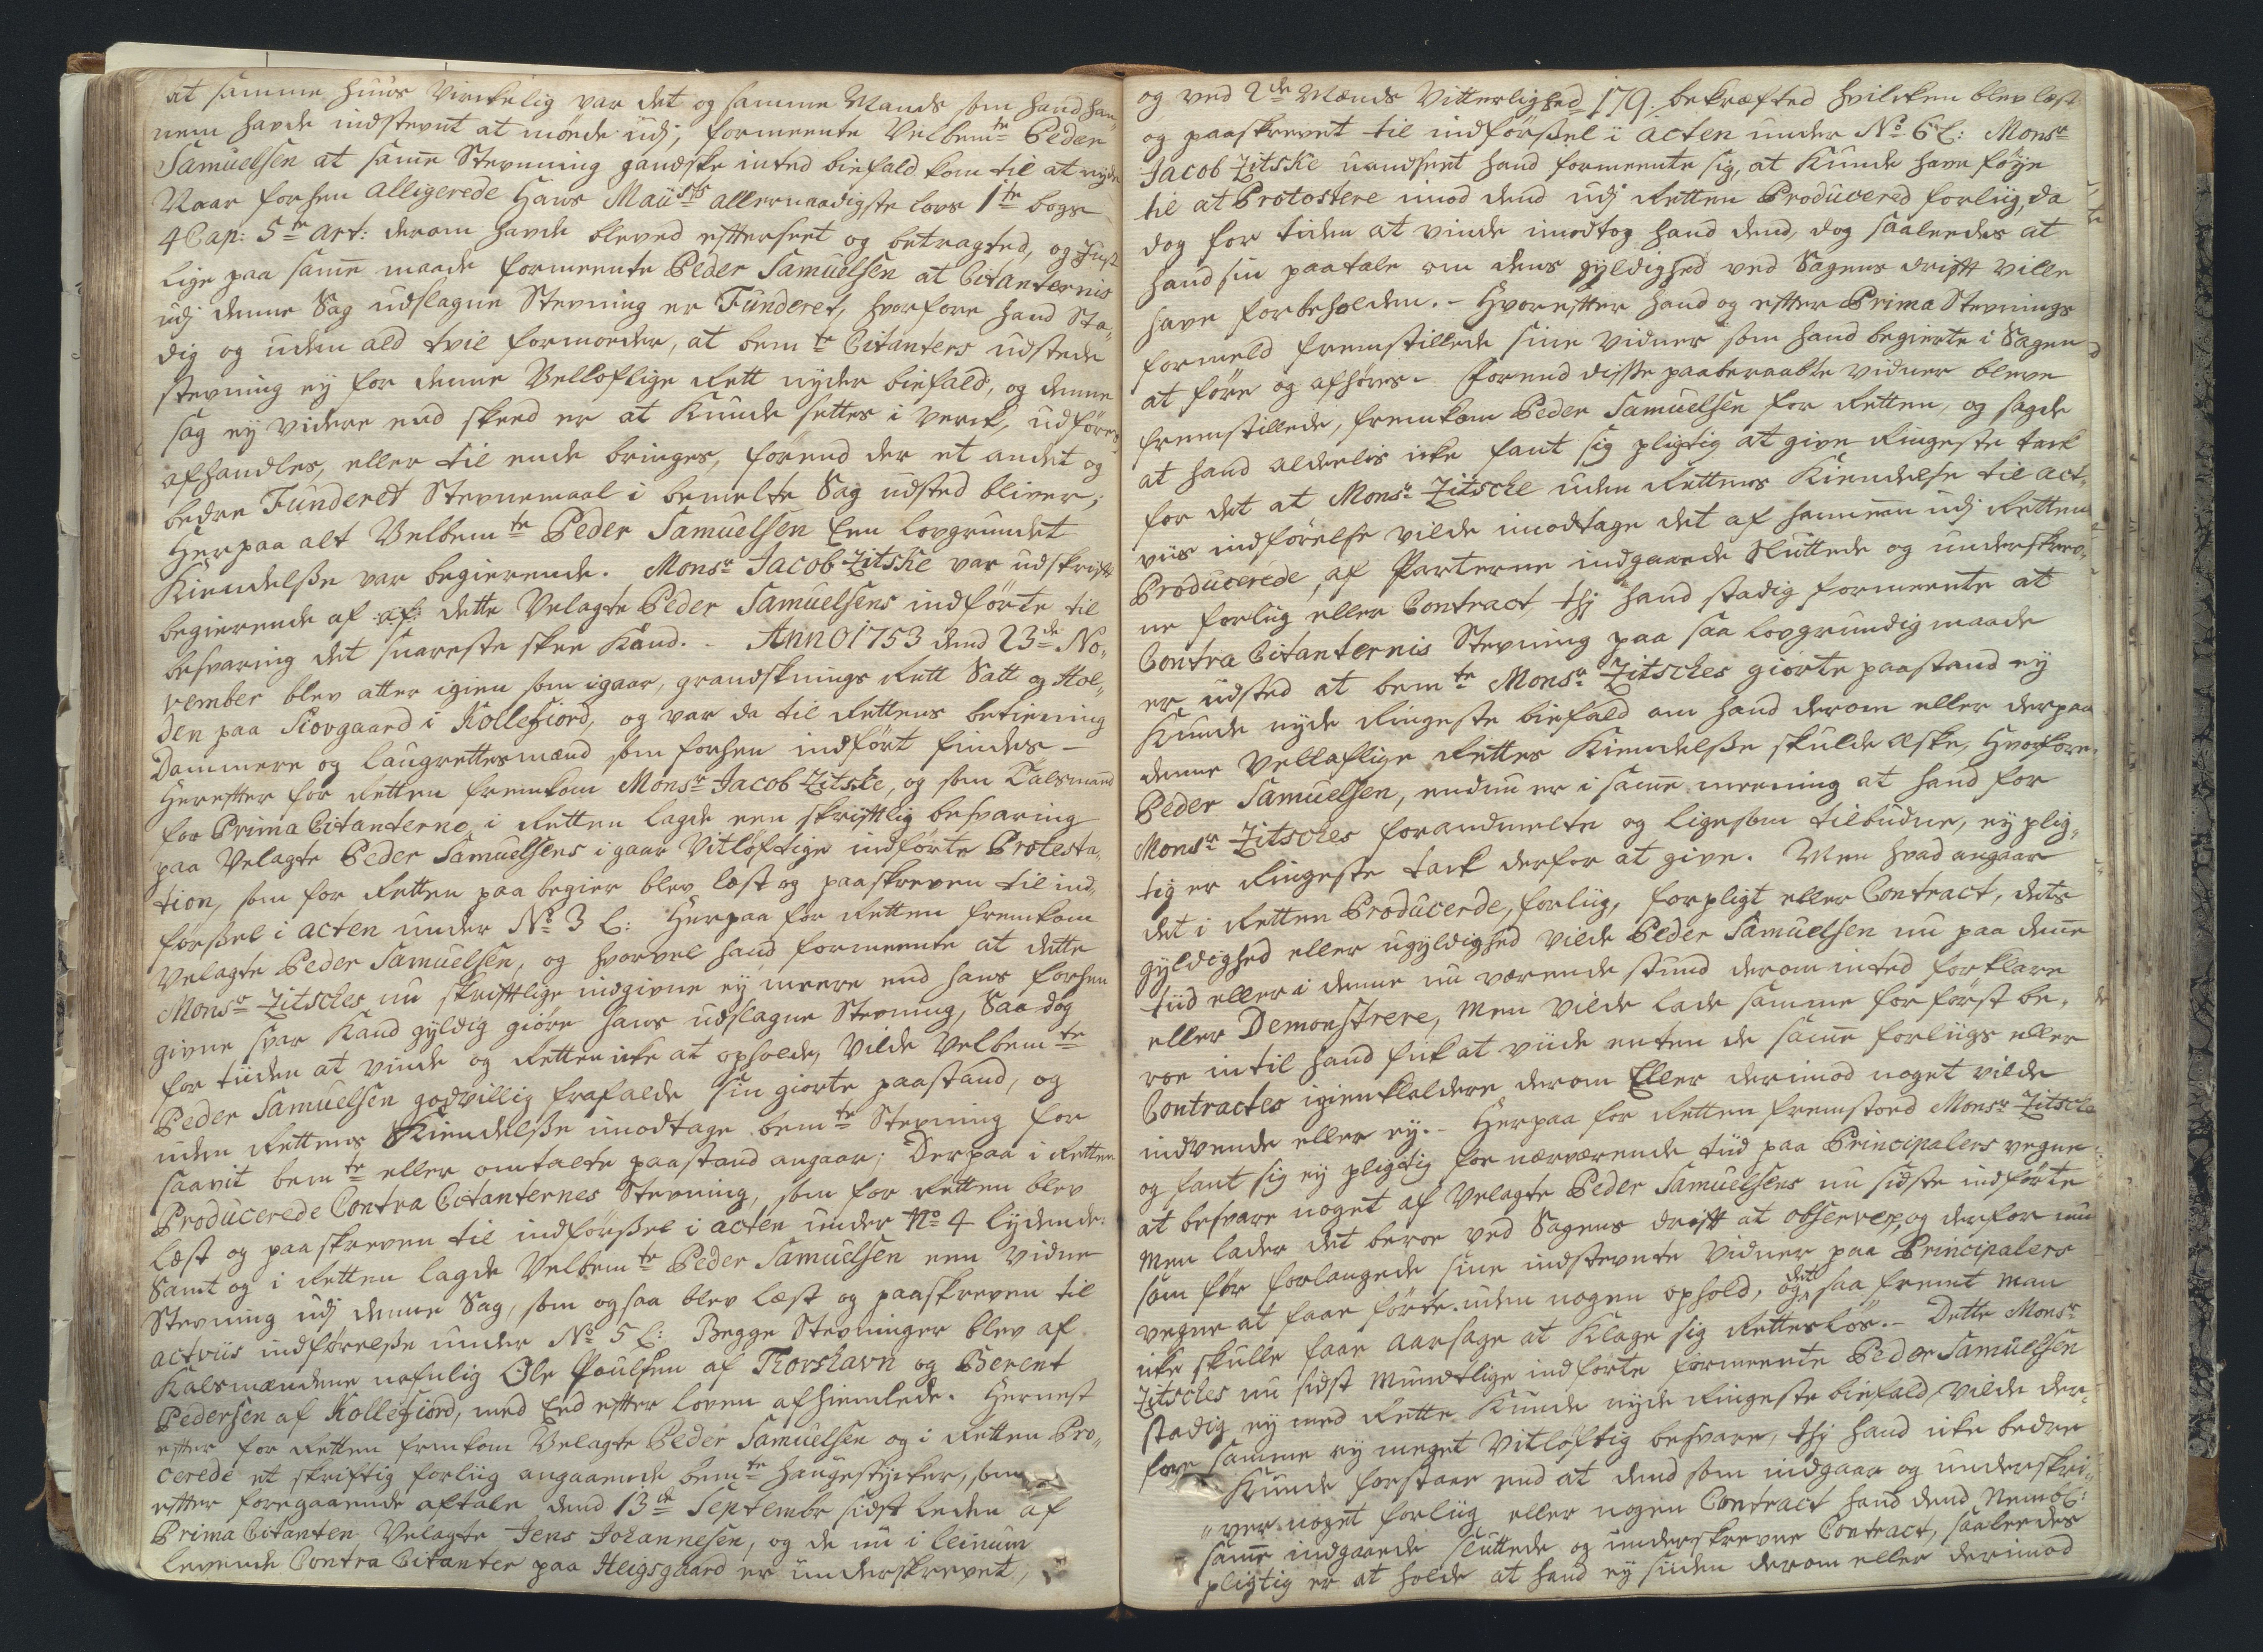 at samme huus Virkelig var det og samme Mands som hand han„
nem havde indstevnt at mœde udj, formeente Velbemte Peder
Samuelsen at same Stevnning gandske inted biefald kom til at nyde
Naar forhen alligerede Hans Maÿsts allernaadigste lovs 1te bogs
4 Cap: 5te art: derom havde bleved efterseet og betragted, og Just
lige paa same maade formeente Peder Samuelsen at Citanternis
udj denne Sag udslagne Stevning er Funderet, hvorfore hand Sta„
dig og uden ald tvil formoeder, at bemte Citanters udstede
stevning eÿ for denne Velloflige Rett nyder biefald, og denne
sag eÿ videre end skeed er at kunde settes i verck, udföres
afhandles, eller til ende bringes, forend der et andet og
bedre Funderet Stevnemaal i bemelte Sag udsted bliver;
Herpaa alt Velbemte Peder Samuelsen Een lovgrundet
Kiendelsse var begierende. Monsr Jacob Zitske var udskrift
begierende af :af: dette Velagte Peder Samuelsens indførte til
besvaring det snareste skee kand. - Anno 1753 dend 23de No„
vember blev atter igien som igaar, grandsknings Rett Satt og Hol„
den paa Skovgaard i Kollefiord, og var da til Rettens betiening
Dommere og laugrettesmænd som forhen indført findes -
Herefter for Retten fremkom Monsr Jacob Zitske, og som Talsmand
for Prima Citanterne i Retten lagde een skriftlig besvaring
paa Velagte Peder Samuelsens i gaar Vitløftige indførte Protesta„
tion, som for Retten paa begier blev læst og paaskreven til ind„
førssel i acten under No 3 L: Herpaa for Retten fremkom
Velagte Peder Samuelsen, og hvorvel hand formeente at dette
Monsr Zitsches nu skriftlige indgivne eÿ meere end hans forhen
givne svar kand gyldig giøre hans udslagne Stevning, Saa dog
for tiiden at vinde og Retten icke at opholde, Vilde Velbemte
Peder Samuelsen godvillig frafalde sin giorte paastand, og
uden Rettens Kiendelsse imodtage bemte Stevning for
saavit bemte eller omtalte paastand angaar; Derpaa i Retten
Producerede Contra Citanternes Stevning, som for Retten blev
læst og paaskreven til indførssel i acten under No 4 lydende:
Samt og i Retten lagde Velbemte Peder Samuelsen een Vidne
Stevning udj denne Sag, som ogsaa blev læst og paaskreven til
actviis indførelsse under No 5 L: Begge Stevninger blev af
Kalsmændene nefnlig Ole Poulsen af Thorshavn og Berent
Pedersen af Kollefiord, med Eed efter loven afhiemlede. Hernest
efter for Retten fremkom Velagte Peder Samuelsen og i Retten Pro„
cerede et skriftig forliig angaaende bemte haugestycker, som
efter foregaaende aftale dend 13de Septembr sidst leeden af
Prima Citanten Velagte Jens Johannesen, og de nu i leinum
levende Contra Citanter paa Heigsgaard er underskrevet,
og ved 2de Mænds Vitterlighed 179. bekræfted hvilcken blev læst
og paaskrevet til indførssel i acten under No 6 L: Monsr
Jacob Zitske uandseet hand formeente sig, at kunde have føye
til at Protostere imod dend udj Retten Produceret forliig, da
dog for tiden at vinde imodtog hand dend, dog saaleedes at
hand sin paatale om dens gyldighed ved Sagens drifft ville
have forbeholden. - Hvorefter hand og efter Prima Stevnings
formeld fremstillede sine vidner som hand begierte i Sagen
at føre og afhøres. Forend disse paaberaabte vidner bleve
fremstillede, fremkom Peder Samuelsen for Retten, og sagde
at hand alderlis icke fant sig pligtig at give Ringeste tack
for det at Monsr Zitsche uden Rettens Kiendelse til act„
viis indførelse vilde imodtage det af hannem udj Retten
Producerede, af Parterne indgaaede Sluttede og underskrev„
ne forliig eller Contract, thj hand stadig formeente at
Contra Citanternis Stevning paa saa lovgrundig maade
er udsted at bemte Monsr Zitsches giorte paastand eÿ
kunde nyde Ringeste biefald om hand derom eller derpaa
denne Velloflige Rettes Kiendelsse skulde æske, Hvorfore
Peder Samuelsen, endnu er i same meening at hand for
Monsr Zitsches forandmelte og ligesom tilbudne, eÿ plig„
tig er Ringeste tack derfor at give. Men hvad angaar
det i Retten Producerde, forliig, forpligt eller Contract, dets
gyldighed eller ugyldighed vilde Peder Samuelsen nu paa denne
tiid eller i denne nu værende stund derom inted forklare
eller Demonstrere, Men vilde lade samme for først be„
roe intil hand fik at viide enten de same forliigs eller
Contractes igienkaldere derom Eller derimod noget vilde
indvende eller eÿ. - Herpaa for Retten fremstoed Monsr Zitsche
og fant sig eÿ pligtig for nærværende tiid paa Principalers vegne
at besvare noget af Velagte Peder Samuelsens nu sidste indførte
men lader det beroe ved Sagens drifft at observeres, og derfor nu
som før forlangede sine indstevnte Vidner paa Principalers
vegne at faae førte uden nogen ophold, og det saa fremt man
icke skulle faae aarsage at klage sig Retteløs. - Dette Monsr
Zitsches nu sidst Mundtlige indførte formeente Peder Samuelsen
stadig eÿ med Rette kunde nyde Ringeste biefald, vilde der„
fore samme eÿ meget Vitløftig besvare, thj hand icke bedre
kunde forstaae end at dend som indgaar og underskri„
„ver noget forliig eller nogen Contract hand dend Nem L:
same indgaaede sluttede og underskrevne Contract, saaleedes
pligtig er at holde at hand eÿ siiden derom eller derimod